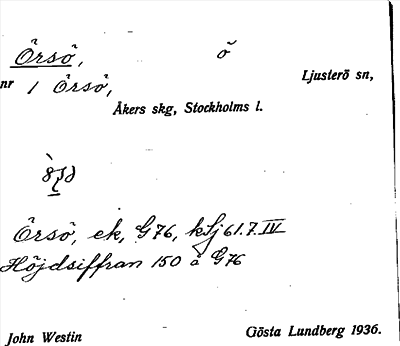 Örsö, ö
nr 1 Örsö, Ljusterö sn,
Åkers skg, Stockholms l.
Örsö, ek, G76, kLj 61.7.IV
Höjdsiffran 150 å G76
John Westin Gösta Lundberg 1936.